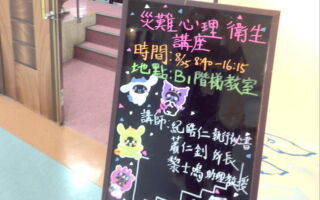 災難心理衛生
講座
時間:8/5 840-16:15
地點:B1階梯教室
講師:紀 仁執行秘書
蕭仁釗 所長
黎士鳴 助理教授